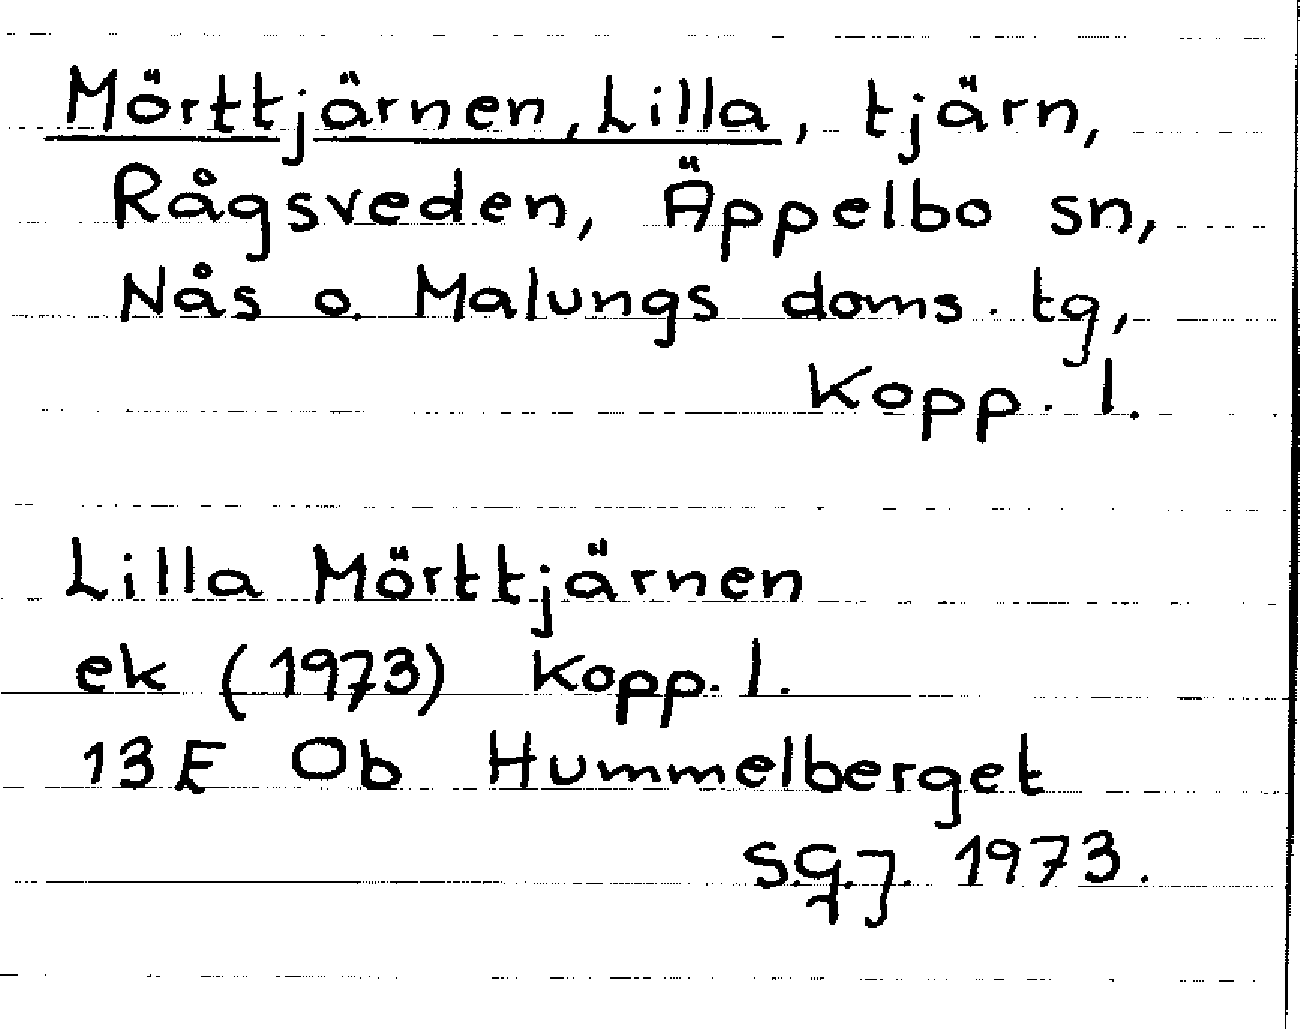 Mörttjärnen, Lilla, tjärn,
Rågsveden, Äppelbo sn,
Nås o. Malungs doms. tg,
Kopp. l.
Lilla Mörttjärnen
ek (1973) Kopp. l.
13E Ob Hummelberget
S.G.J. 1973.